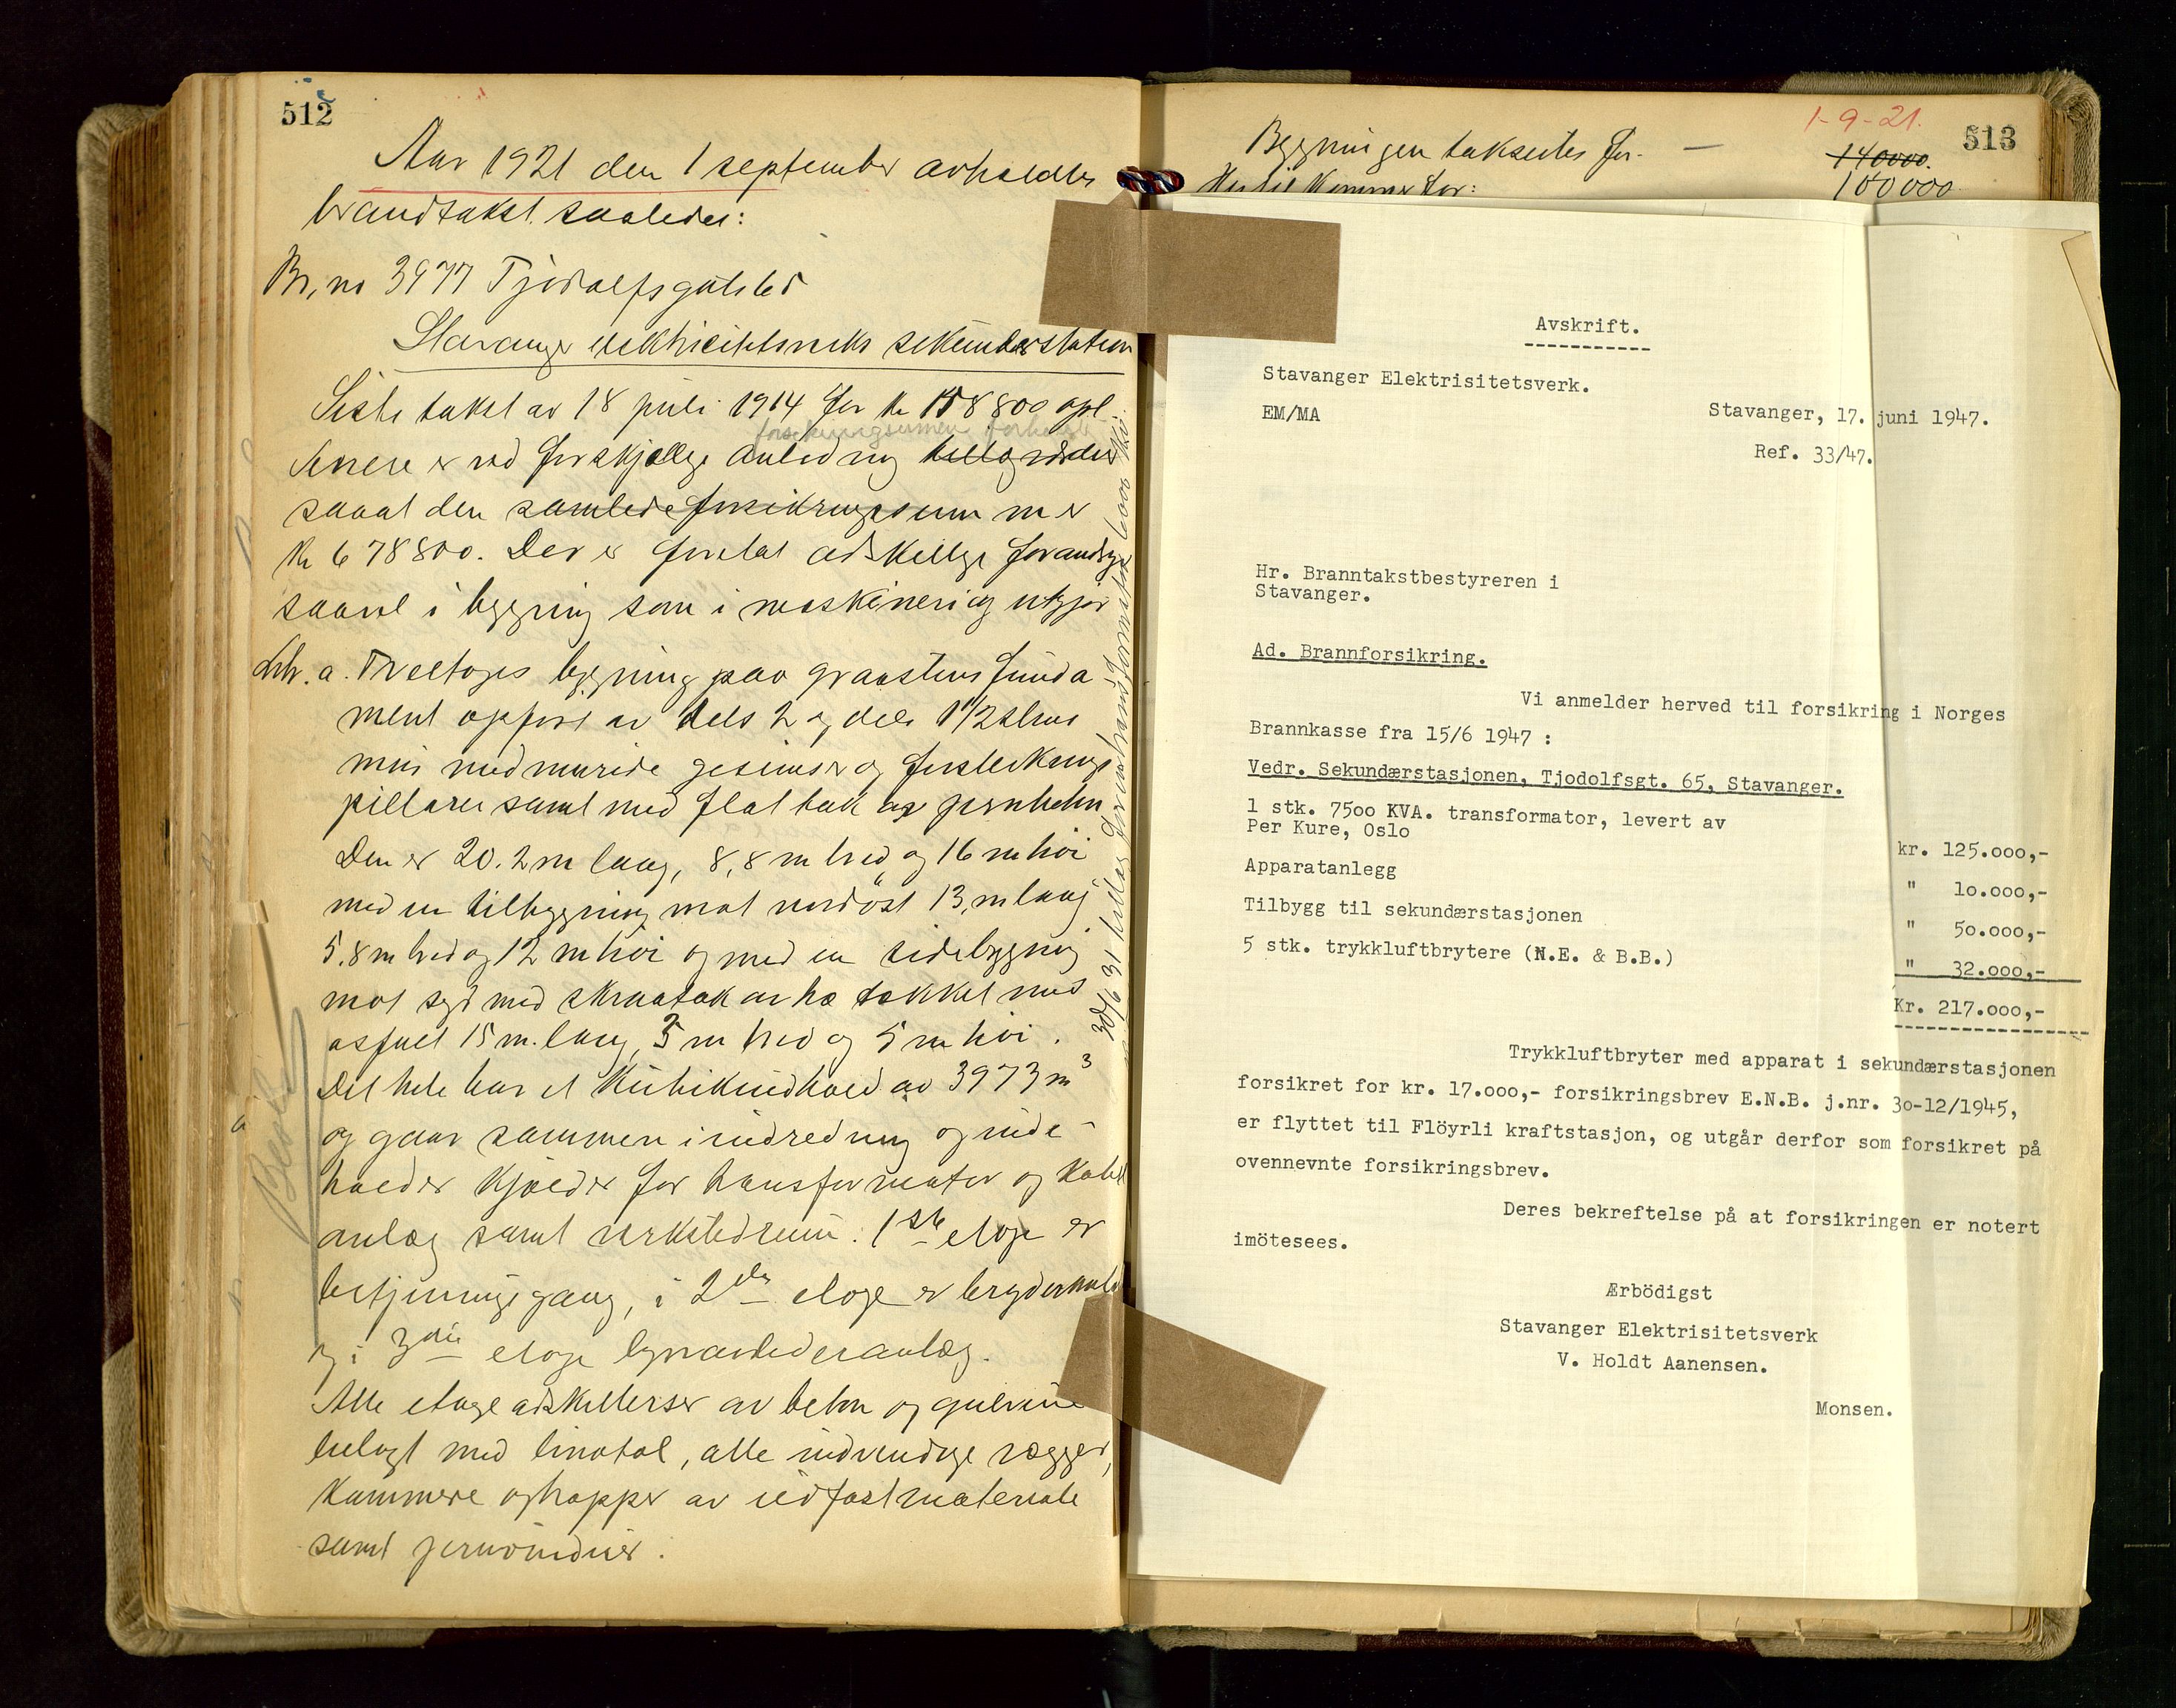 512
Aar 1921 den 1 september avholdtes
brandtakst saaledes:
Br, no 3977 Tjodolfsgate 65
Stavanger elektricitetsverks sekunderstation
Siste takst av 18 juli 1914 for kr 158800 opl.
forsikringssummen forhøiet
Senere er ved forskjellige anledning tillegg
saaat den samlede forsikringssum er
Kr 678800. Der er foretat adskillige forandringer
saavel i bygning som i maskineri og utgjør
Litr. a. Treetages bygning paa graastens funda-
ment opført av dels 2 og dels 1 1/2 stens
mur med murede gesimser og forsterknings
pillarer samt med flat tak av jernbeton
Den er 20.2 m lang, 8,8 m bred og 16 m høi
med en tilbygning mot nordøst 13, m lang
5.8 m bred og 12 m høi og med en sidebygning
mot syd med skraatak av træ tækket med
asfalt 15 m. lang, 3 m bred og 5 m høi.
Det hele har et kubikindhold av 3973 m³
og gaar sammen i indredning og inde-
holder kjelder for transformator og kabel
anlæg samt verkstedrum. 1ste etage er
betjeningsgang, i 2den etage er bryterrum
og i 3die etage lynavlederanlæg.
Alle etageadskillelser av beton og gulvene
belagt med linotol, alle indvendige vægger,
kammere og trapper av ildfast materiale
samt jernvinduer.
513
1-9-21.
Bygningen takseres for — 140000.
Hertil kommer for: 100000
Avskrift.
Stavanger Elektrisitetsverk.
EM/MA
Stavanger, 17. juni 1947.
Ref. 33/47.
Hr. Branntakstbestyreren i
Stavanger.
Ad. Brannforsikring.
Vi anmelder herved til forsikring i Norges
Brannkasse fra 15/6 1947 :
Vedr. Sekundærstasjonen, Tjodolfsgt. 65, Stavanger.
1 stk. 7500 KVA. transformator, levert av
Per Kure, Oslo kr. 125.000,-
Apparatanlegg " 10.000,-
Tilbygg til sekundærstasjonen " 50.000,-
5 stk. trykkluftbrytere (N.E. & B.B.) " 32.000,-
Kr. 217.000,-
Trykkluftbryter med apparat i sekundærstasjonen
forsikret for kr. 17.000,- forsikringsbrev E.N.B. j.nr. 30-12/1945,
er flyttet til Flöyrli kraftstasjon, og utgår derfor som forsikret på
ovennevnte forsikringsbrev.
Deres bekreftelse på at forsikringen er notert
imötesees.
Ærbödigst
Stavanger Elektrisitetsverk
V. Holdt Aanensen.
Monsen.